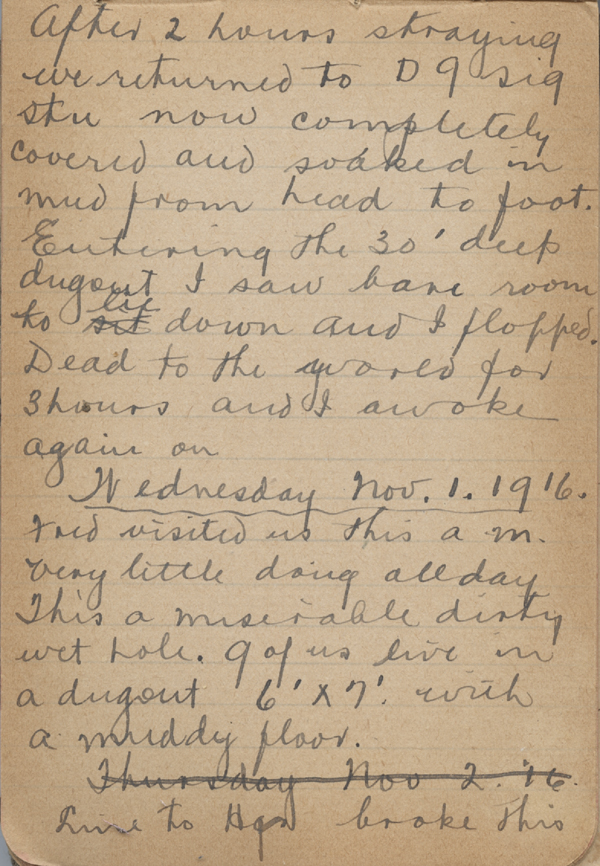 After 2 hours straying
we returned to D 9 sig
stn now completely
covered and soaked in
mud from head to foot.
Entering the 30' deep
dugout I saw bare room
to sit lie down and I flopped.
Dead to the world for
3 hours and I awoke
again on
Wednesday Nov. 1. 1916.
Fred visited us this a m.
very little doing all day
This a miserable dirty
wet hole. 9 of us live in
a dugout 6' x 7'. with
a muddy floor.
Thursday Nov 2. '16.
Line to Hqn broke this